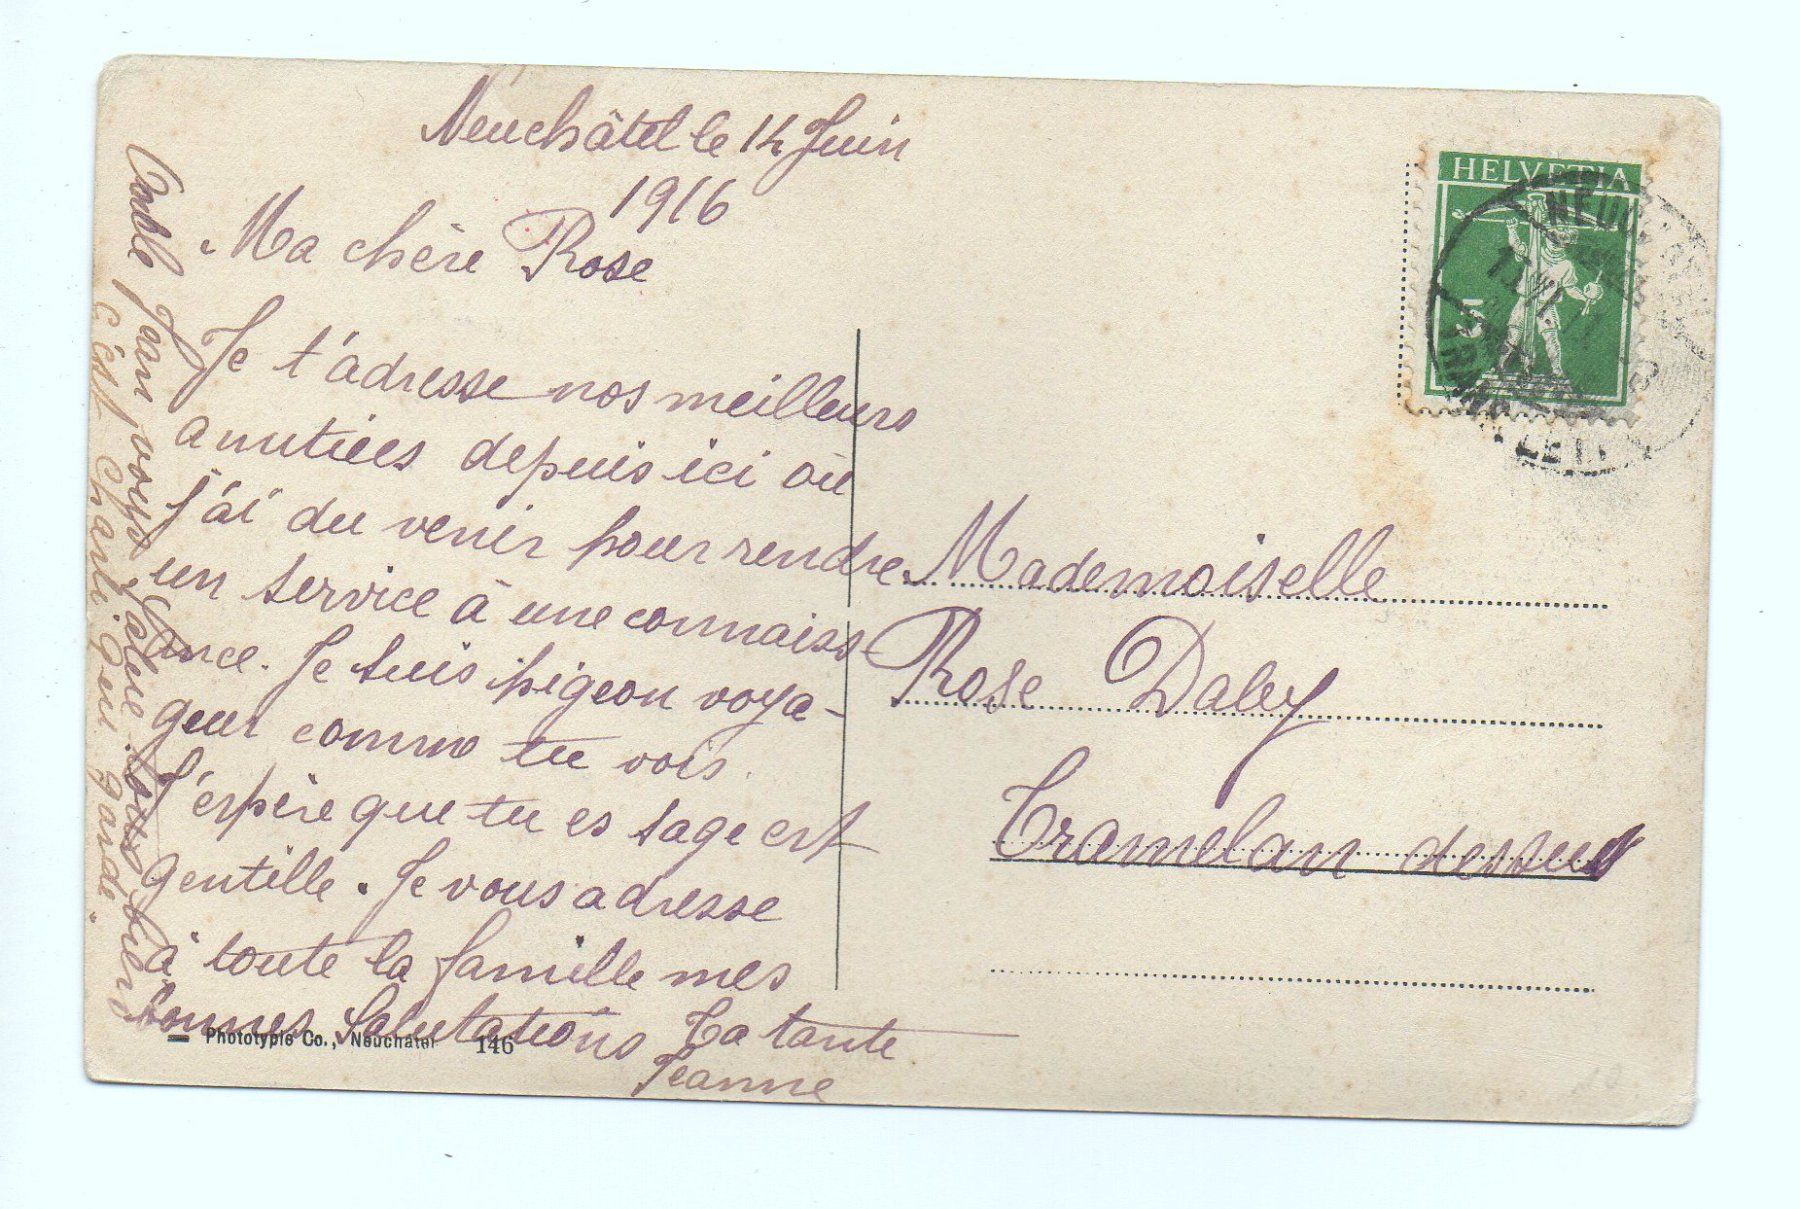 Neuchâtel le 14 Juin
1916
Ma chère Rose
Je t'adresse nos meilleurs
amitiées depuis ici où
j'ai du venir pour rendre
un service à une connaiss
ance. Je suis pigeon voya-
geur comme tu vois.
J'espère que tu es sage est
gentille. Je vous adresse
à toute la famille mes
bonnes Salutations Ta tante
Jeanne
Oncle Jean vous salue tous bien
c'est Charli qui garde.
Phototypie Co., Neuchâtel 146
HELVETIA
5
Mademoiselle
Rose Daley
Tramelan dessus